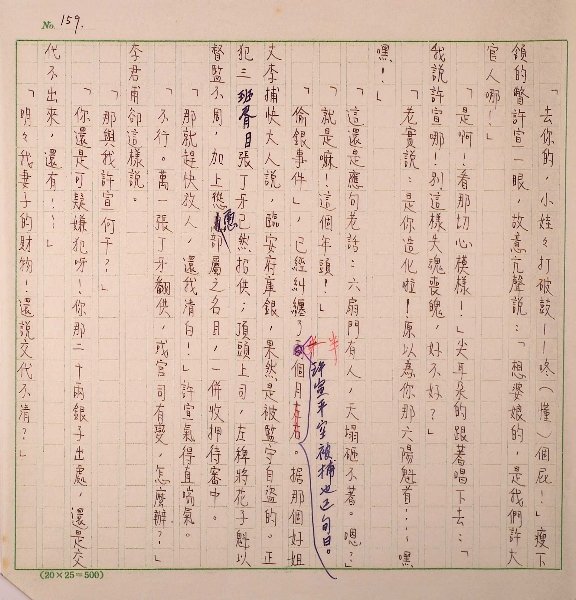 No. 159.
「去你的，小娃々打破鼓——咚（懂）個屁！」瘦下
鎖的瞥許宣一眼，故意亢聲說：「想婆娘的，是我們許大
官人哪！」
「是啊！看那切心模樣！」尖耳朵的跟著唱下去：「
我說許宣哪！別這樣失魂喪魄，好不好？」
「老實說：是你造化啦！原以為你那六陽魁首……嘿
嘿！」
「這還是應句老話：六扇門有人，天塌砸不著。嗯？」
「就是嘛！這個年頭！」
「偷銀事件」，已經糾纏了半個月左右。許宣平空被捕也已旬日。據那個好姐
丈李捕快大人說，臨安府庫銀，果然是被監守自盜的。正
犯三班胥目張丁牙已然招供；頂頭上司，左稗將花子魁以
督監不周，加上慫恿部屬之名目，一併收押待審中。
「那就趕快放人，還我清白！」許宣氣得直喘氣。
「不行。萬一張丁牙翻供，或官司有變，怎麼辦？！」
李君甫卻這樣說。
「那與我許宣何干？」
「你還是可疑嫌犯呀！你那二十兩銀子出處，還是交
代不出來，還有！？」
「明々我妻子的財物！還說交代不清？」
(20×25=500)